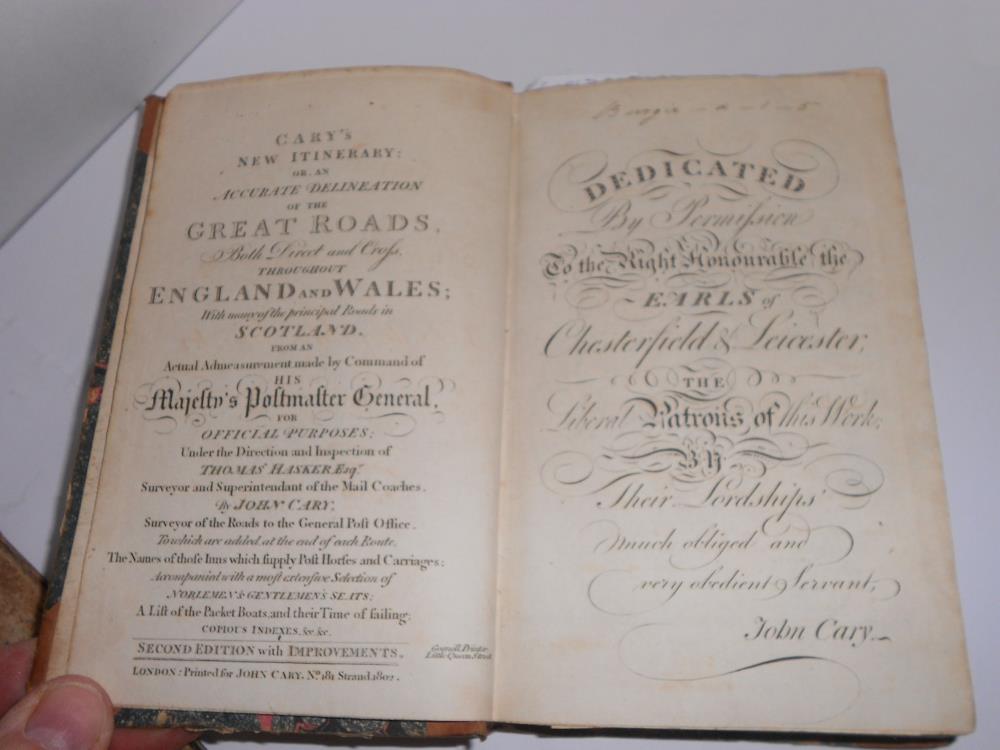 CARY'S
NEW ITINERARY:
OR, AN
ACCURATE DELINEATION
OF THE
GREAT ROADS,
Both Direct and Croſs,
THROUGHOUT
ENGLAND AND WALES;
With many of the principal Roads in
SCOTLAND.
FROM AN
Actual Admeasurement made by Command of
HIS
Majeſty's Poſtmaſter General,
FOR
OFFICIAL PURPOSES;
Under the Direction and Inspection of
THOMAS HASKER Esqr.
Surveyor and Superintendant of the Mail Coaches.
By JOHN CARY.
Surveyor of the Roads to the General Poſt Office.
To which are added, at the end of each Route,
The Names of thoſe Inns which ſupply Poſt Horſes and Carriages;
Accompanied with a moſt extenſive Selection of
NOBLEMEN & GENTLEMEN'S SEATS;
A Liſt of the Packet Boats, and their Time of ſailing;
COPIOUS INDEXES, &c. &c.
SECOND EDITION with IMPROVEMENTS.
Printer
Little Queen Street
LONDON: Printed for JOHN CARY, No. 181 Strand, 1802.
DEDICATED
By Permiſsion
To the Right Honourable the
EARLS of
Chesterfield & Leicester,
THE
Liberal Patrons of this Work;
BY
Their Lordships'
much obliged and
very obedient Servant,
John Cary.